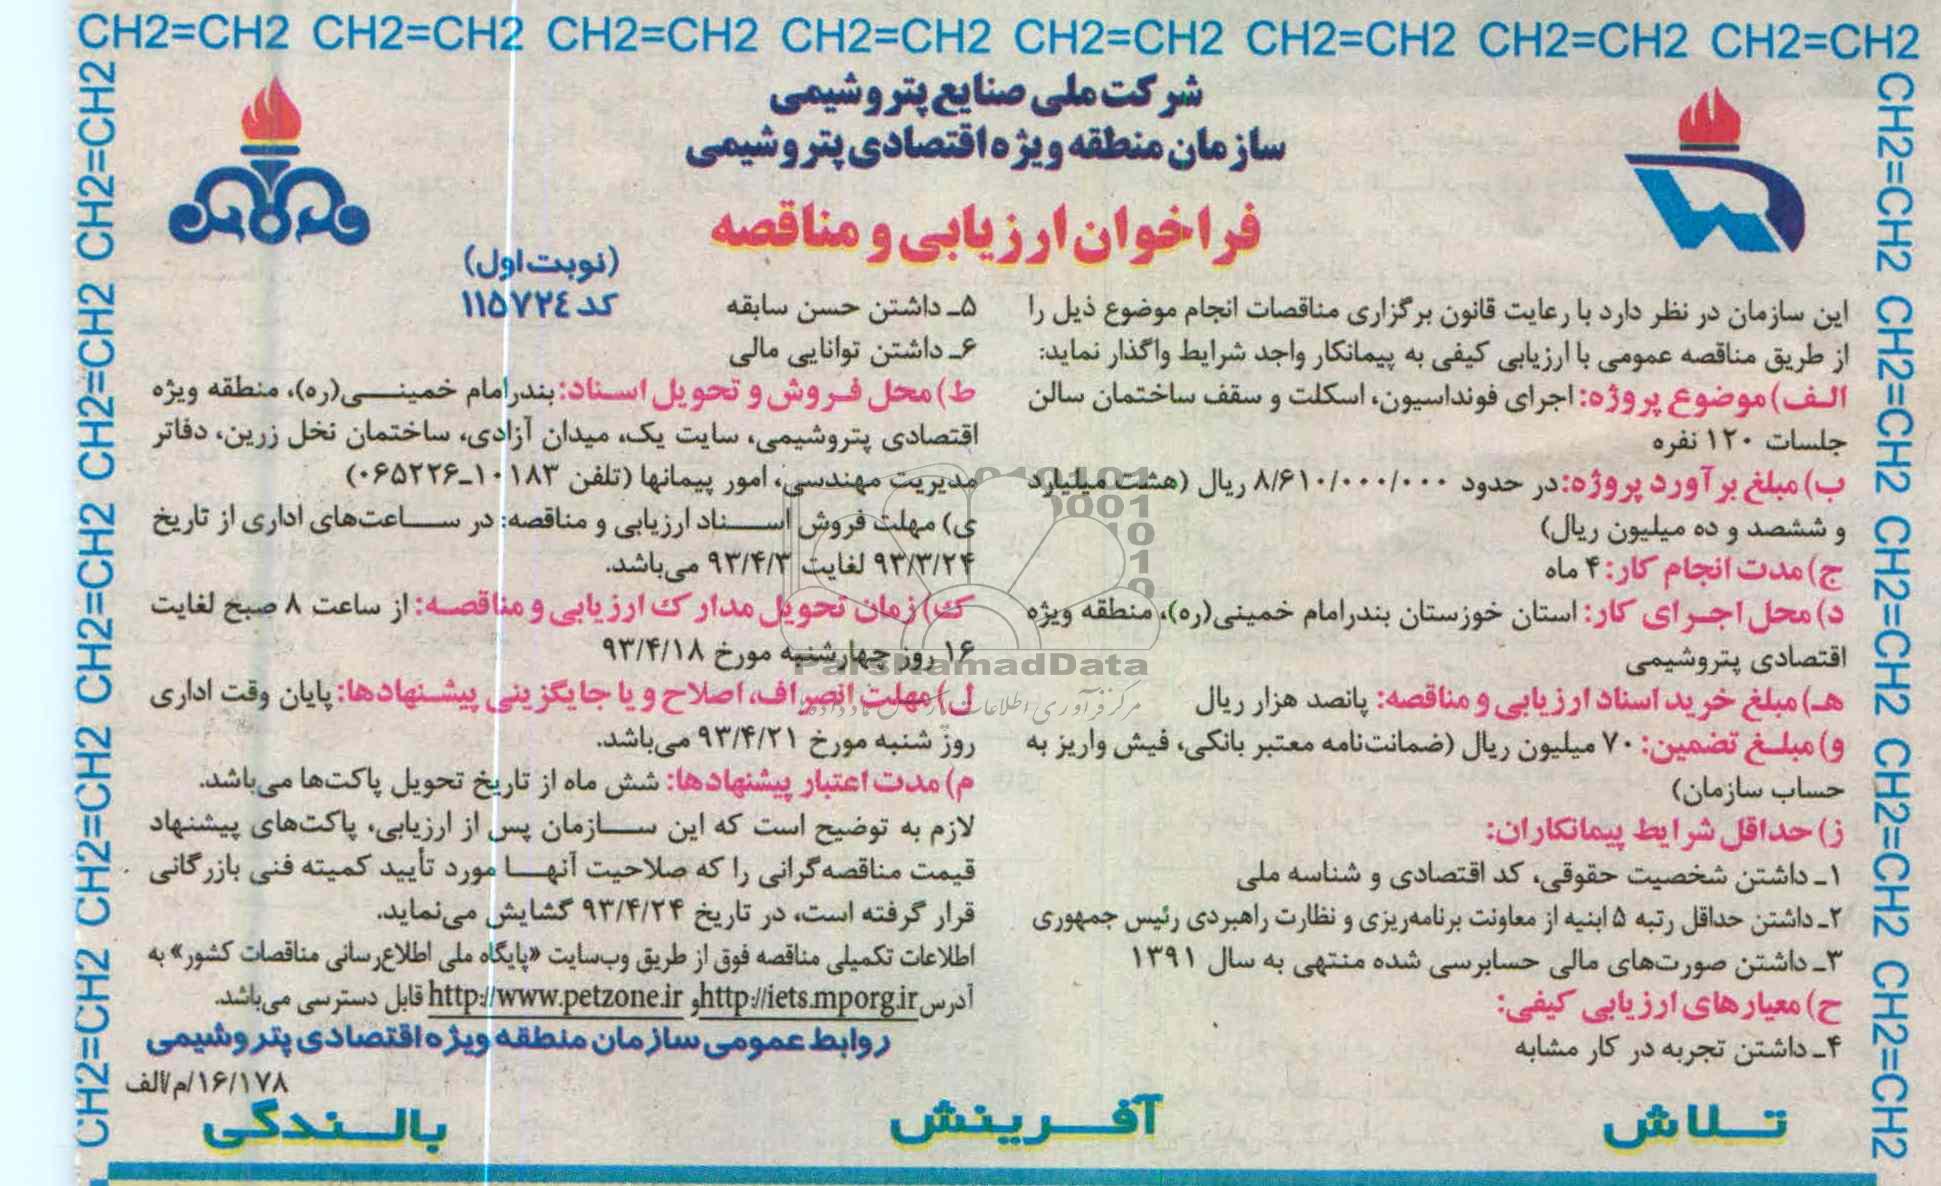 CH2=CH2 CH2=CH2 CH2=CH2 CH2=CH2 CH2=CH2 CH2=CH2 CH2=CH2 CH2=CH2
CH2=CH2 CH2=CH2 CH2=CH2 CH2=CH2 CH2=CH2
CH2=CH2 CH2=CH2 CH2=CH2 CH2=CH2 CH2=CH2
شرکت ملی صنایع پتروشیمی
سازمان منطقه ویژه اقتصادی پتروشیمی
فراخوان ارزیابی و مناقصه
(نوبت اول)
کد ۱۱۵۷۲۴
این سازمان در نظر دارد با رعایت قانون برگزاری مناقصات انجام موضوع ذیل را
از طریق مناقصه عمومی با ارزیابی کیفی به پیمانکار واجد شرایط واگذار نماید:
الـف) موضوع پروژه: اجرای فونداسیون، اسکلت و سقف ساختمان سالن
جلسات ۱۲۰ نفره
ب) مبلغ برآورد پروژه: در حدود ۸/۶۱۰/۰۰۰/۰۰۰ ریال (هشت میلیارد
و ششصد و ده میلیون ریال)
ج) مدت انجام کار: ۴ ماه
د) محل اجرای کار: استان خوزستان بندرامام خمینی(ره)، منطقه ویژه
اقتصادی پتروشیمی
هـ) مبلغ خرید اسناد ارزیابی و مناقصه: پانصد هزار ریال
و) مبلـغ تضمین: ۷۰ میلیون ریال (ضمانت‌نامه معتبر بانکی، فیش واریز به
حساب سازمان)
ز) حداقل شرایط پیمانکاران:
۱ـ داشتن شخصیت حقوقی، کد اقتصادی و شناسه ملی
۲ـ داشتن حداقل رتبه ۵ ابنیه از معاونت برنامه‌ریزی و نظارت راهبردی رئیس جمهوری
۳ـ داشتن صورت‌های مالی حسابرسی شده منتهی به سال ۱۳۹۱
ح) معیارهای ارزیابی کیفی:
۴ـ داشتن تجربه در کار مشابه
۵ـ داشتن حسن سابقه
۶ـ داشتن توانایی مالی
ط) محل فـروش و تحویل اسـناد: بندرامام خمینـــی(ره)، منطقه ویژه
اقتصادی پتروشیمی، سایت یک، میدان آزادی، ساختمان نخل زرین، دفاتر
مدیریت مهندسی، امور پیمانها (تلفن ۱۰۱۸۳ـ۰۶۵۲۲۶)
ی) مهلت فروش اســـناد ارزیابی و مناقصه: در ســـاعت‌های اداری از تاریخ
۹۳/۳/۲۴ لغایت ۹۳/۴/۳ می‌باشد.
ک) زمان تحویل مدارک ارزیابی و مناقصـه: از ساعت ۸ صبح لغایت
۱۶ روز چهارشنبه مورخ ۹۳/۴/۱۸
ل) مهلت انصراف، اصلاح و یا جایگزینی پیشـنهادها: پایان وقت اداری
روز شنبه مورخ ۹۳/۴/۲۱ می‌باشد.
م) مدت اعتبار پیشنهادها: شش ماه از تاریخ تحویل پاکت‌ها می‌باشد.
لازم به توضیح است که این ســـازمان پس از ارزیابی، پاکت‌های پیشنهاد
قیمت مناقصه‌گرانی را که صلاحیت آنهـــا مورد تأیید کمیته فنی بازرگانی
قرار گرفته است، در تاریخ ۹۳/۴/۲۴ گشایش می‌نماید.
اطلاعات تکمیلی مناقصه فوق از طریق وب‌سایت «پایگاه ملی اطلاع‌رسانی مناقصات کشور» به
آدرس http://iets.mporg.ir و http://www.petzone.ir قابل دسترسی می‌باشد.
روابط عمومی سازمان منطقه ویژه اقتصادی پتروشیمی
۱۶/۱۷۸/م/الف
تــلاش آفـــرینش بالـــندگی
ParsNamadData